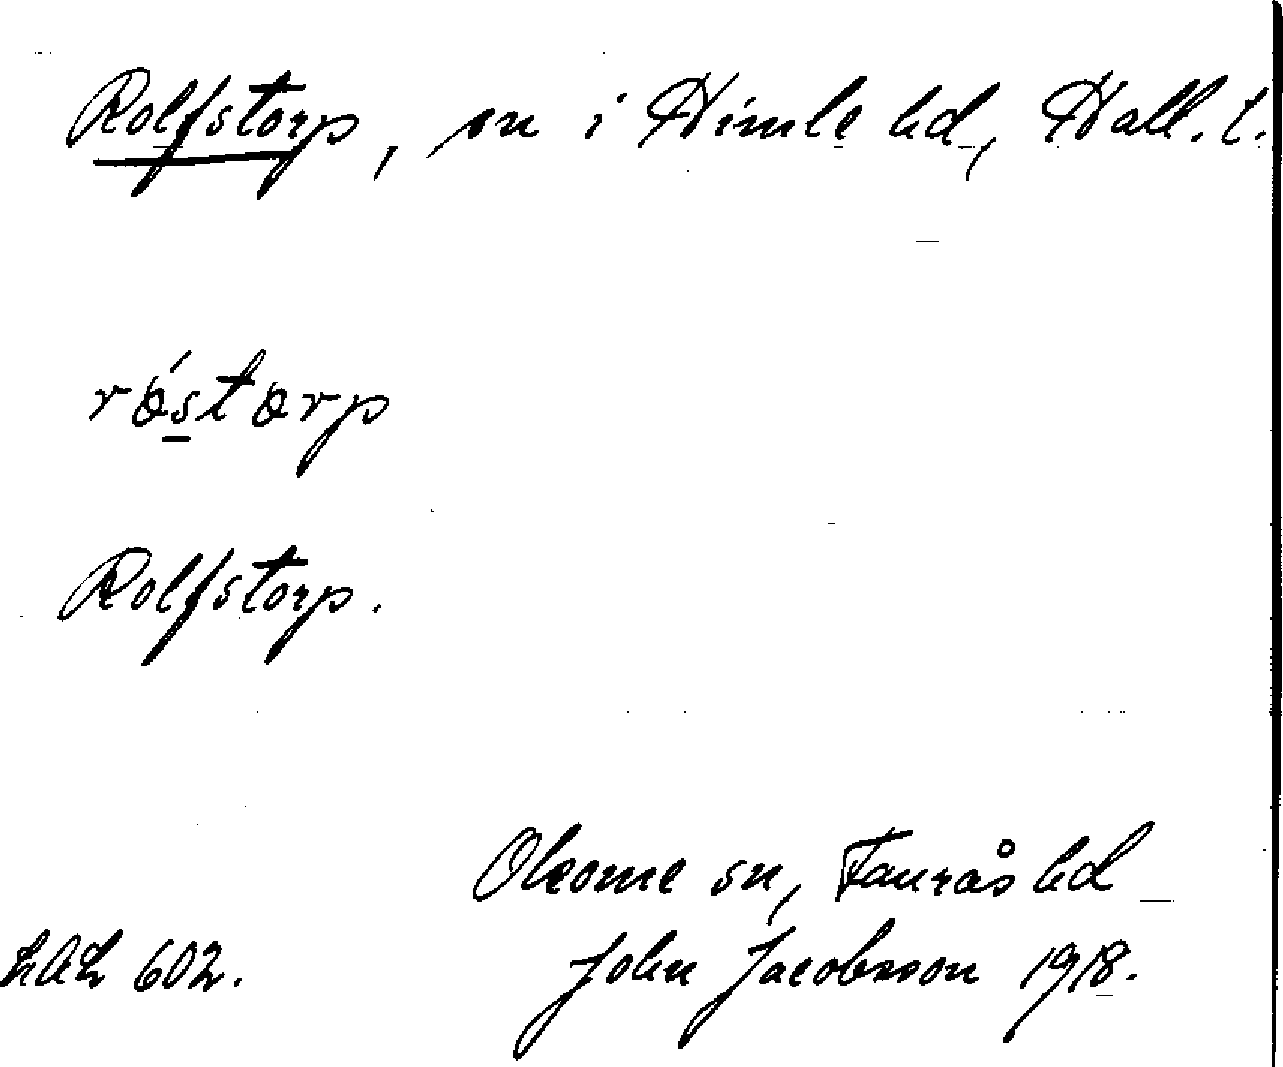 Rolfstorp, sn i Himle hd, Hall. l.
róstorp
Rolfstorp.
Okome sn, Faurås hd
LAL 602. John Jacobsson 1918.